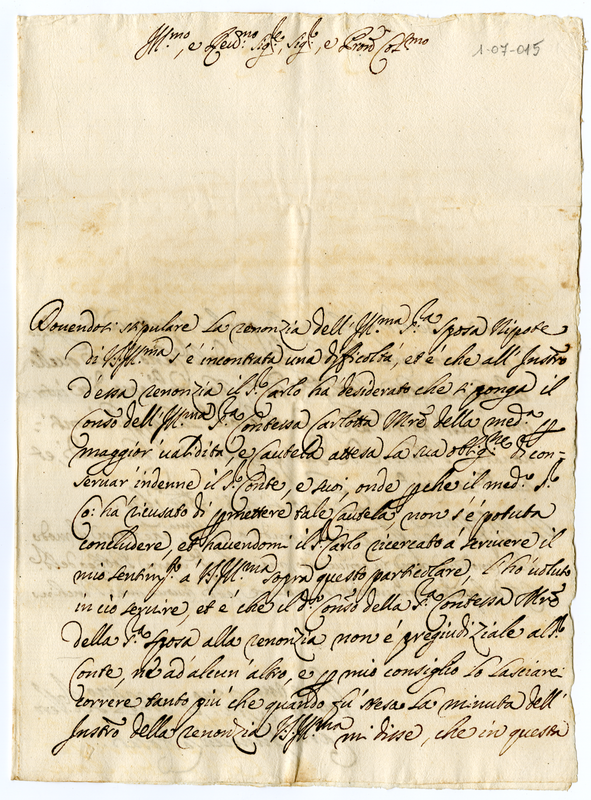 Ill.mo, e Reud.mo Sig.re, Sig.re, e Pron.e Col.mo
1-07-015
Douendosi stipulare la renonzia dell'Ill.ma S.ra Sposa Nipote
di V.S.Ill.ma s'è incontrata una dificoltà, et è che all'Instro
d'essa renonzia il S.r Carlo ha desiderato che si ponga il
Conso dell'Ill.ma S.ra Contessa Carlotta Mre della med.a p
maggior ualidità, e cautela attesa la sua oblig.ne di con-
seruar indenne il S.r Conte, e suoi, onde pche il med.o S.r
Co: ha ricusato di pmettere tale cautela non s'è potuta
concludere, et hauendomi il S.r Carlo ricercato a scriuere il
mio sentim.to a V.S.Ill.ma sopra questo particolare, l'ho uoluto
in ciò seruire, et è che il d.o Conso della S.ra Contessa Mre
della S.ra Sposa alla renonzia non è pregiudiziale al S.r
Conte, nè ad alcun'altro, e p mio consiglio lo lasciarei
correre tanto più che quando fù stesa la minuta dell'
Instro della renonzia V.S.Ill.ma mi disse, che in questa